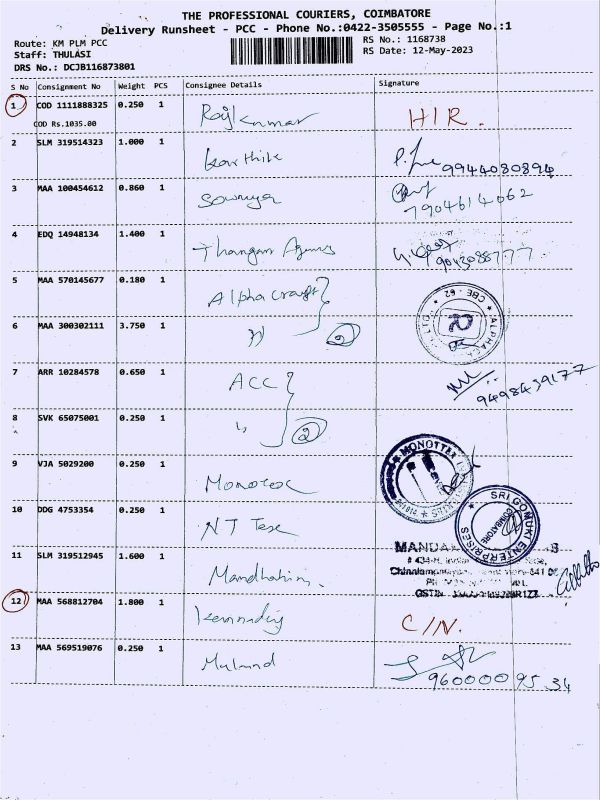 THE PROFESSIONAL COURIERS, COIMBATORE
Delivery Runsheet - PCC - Phone No.:0422-3505555 - Page No.:1
Route: KM PLM PCC
RS No.: 1168738
Staff: THULASI
RS Date: 12-May-2023
DRS No.: DCJB116873801
S No Consignment No Weight PCS Consignee Details Signature
1 COD 1111888325 0.250 1 Rajkumar HIR.
COD Rs.1035.00
2 SLM 319514323 1.000 1 Karthik 9944080894
3 MAA 100454612 0.860 1 Sowmya 7904614062
4 EDQ 14948134 1.400 1 Thangam
5 MAA 570145677 0.180 1 Alpha craft
6 MAA 300302111 3.750 1 2
7 ARR 10284578 0.650 1 ACC 9498439177
8 SVK 65075001 0.250 1 2
9 VJA 5029200 0.250 1 MONOTTEK
10 DDG 4753354 0.250 1 NT
SRI GOMUKI ENTERPRISES
COIMBATORE
11 SLM 319512945 1.600 1
12 MAA 568812704 1.800 1 C/N.
13 MAA 569519076 0.250 1 Mukund
9600009534